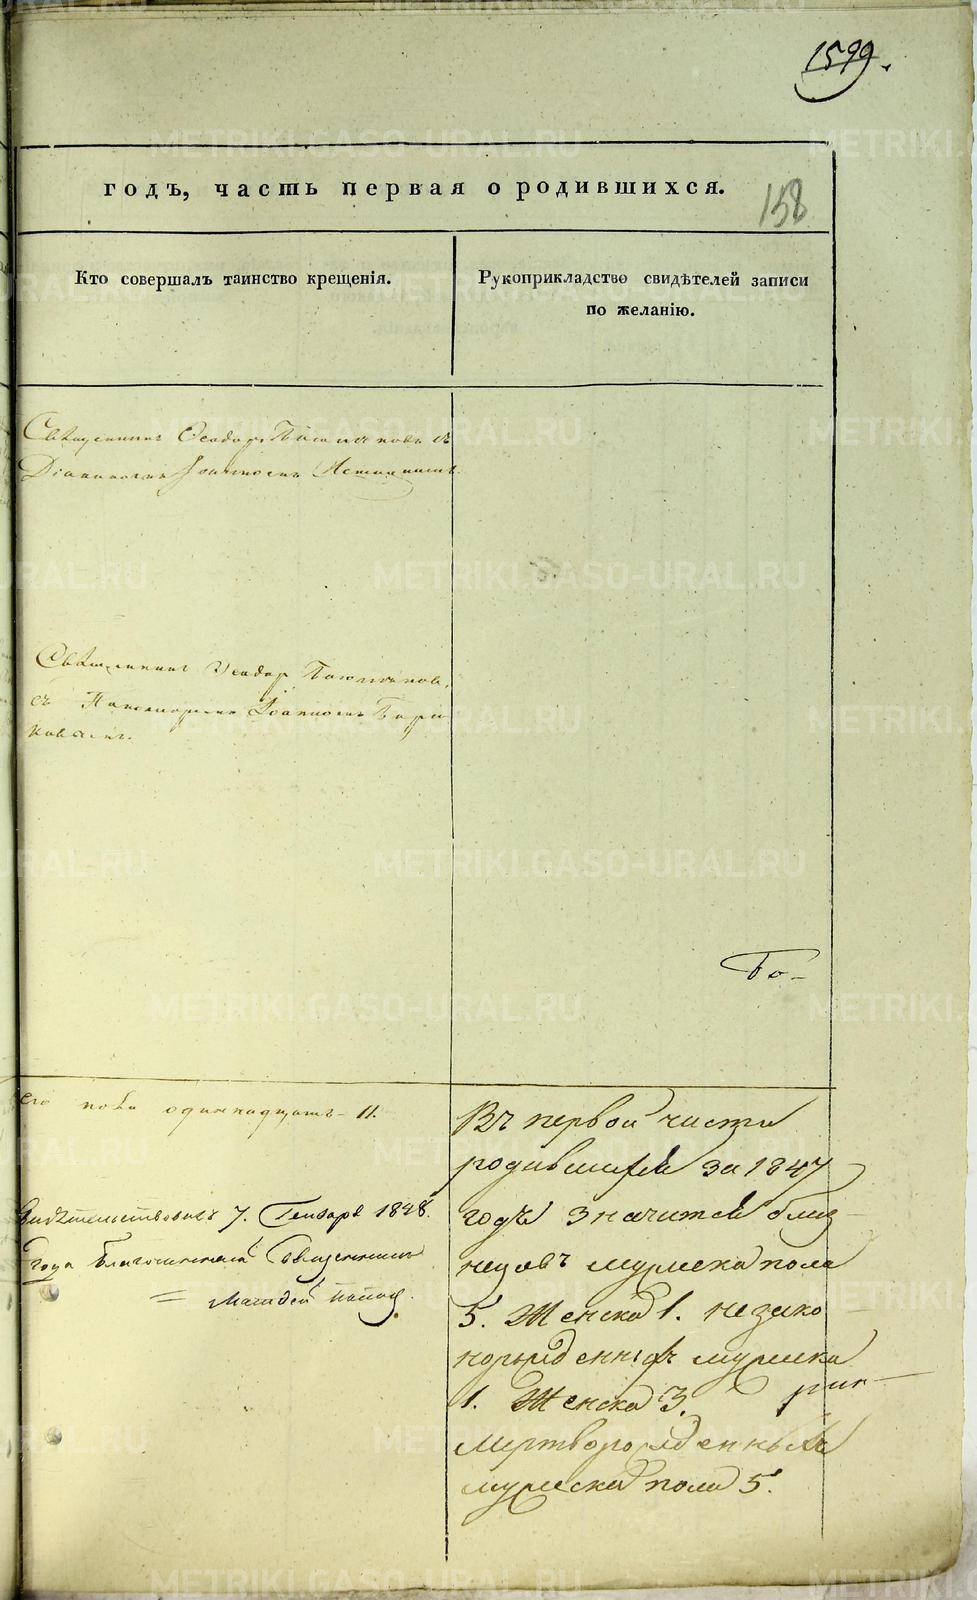 1599.
годъ, часть первая о родившихся.
158
Кто совершалъ таинство крещенія.
Рукоприкладство свидѣтелей записи
по желанію.
Священникъ Ѳеодоръ съ
Діакономъ Іоанномъ
Священникъ Ѳеодоръ
съ Пономаремъ Іоанномъ
Бо-
его пола одиннадцать - 11.
Свидѣтельствовалъ 7. Генваря 1848.
года Благочинный Священникъ
= Матфей Попов.
Въ первой части
родившихся за 1847
годъ значится близ
нецовъ мужеска пола
5. Женска 1. незако
норожденныхъ мужеска
1. Женска 3.
мертворожденныхъ
мужеска пола 5.
METRIKI.GASO-URAL.RU